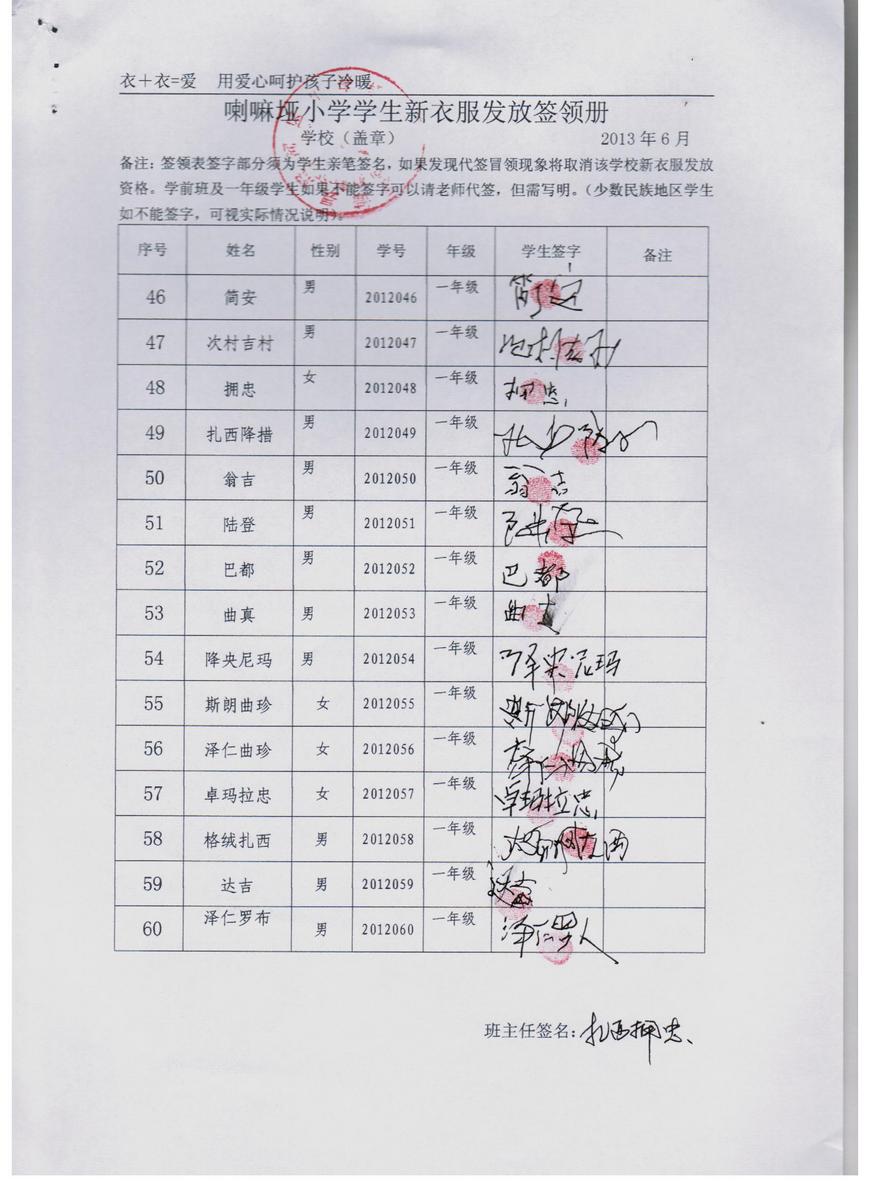 衣＋衣=爱 用爱心呵护孩子冷暖
喇嘛垭小学学生新衣服发放签领册
学校（盖章） 2013年6月
备注：签领表签字部分须为学生亲笔签名，如果发现代签冒领现象将取消该学校新衣服发放
资格。学前班及一年级学生如果不能签字可以请老师代签，但需写明。（少数民族地区学生
如不能签字，可视实际情况说明）。
序号 姓名 性别 学号 年级 学生签字 备注
46 简安 男 2012046 一年级
47 次村吉村 男 2012047 一年级
48 拥忠 女 2012048 一年级 拥忠
49 扎西降措 男 2012049 一年级
50 翁吉 男 2012050 一年级 翁吉
51 陆登 男 2012051 一年级 陆登
52 巴都 男 2012052 一年级 巴都
53 曲真 男 2012053 一年级 曲真
54 降央尼玛 男 2012054 一年级 降央尼玛
55 斯朗曲珍 女 2012055 一年级
56 泽仁曲珍 女 2012056 一年级
57 卓玛拉忠 女 2012057 一年级 卓玛拉忠
58 格绒扎西 男 2012058 一年级
59 达吉 男 2012059 一年级
60 泽仁罗布 男 2012060 一年级
班主任签名：扎西拥忠